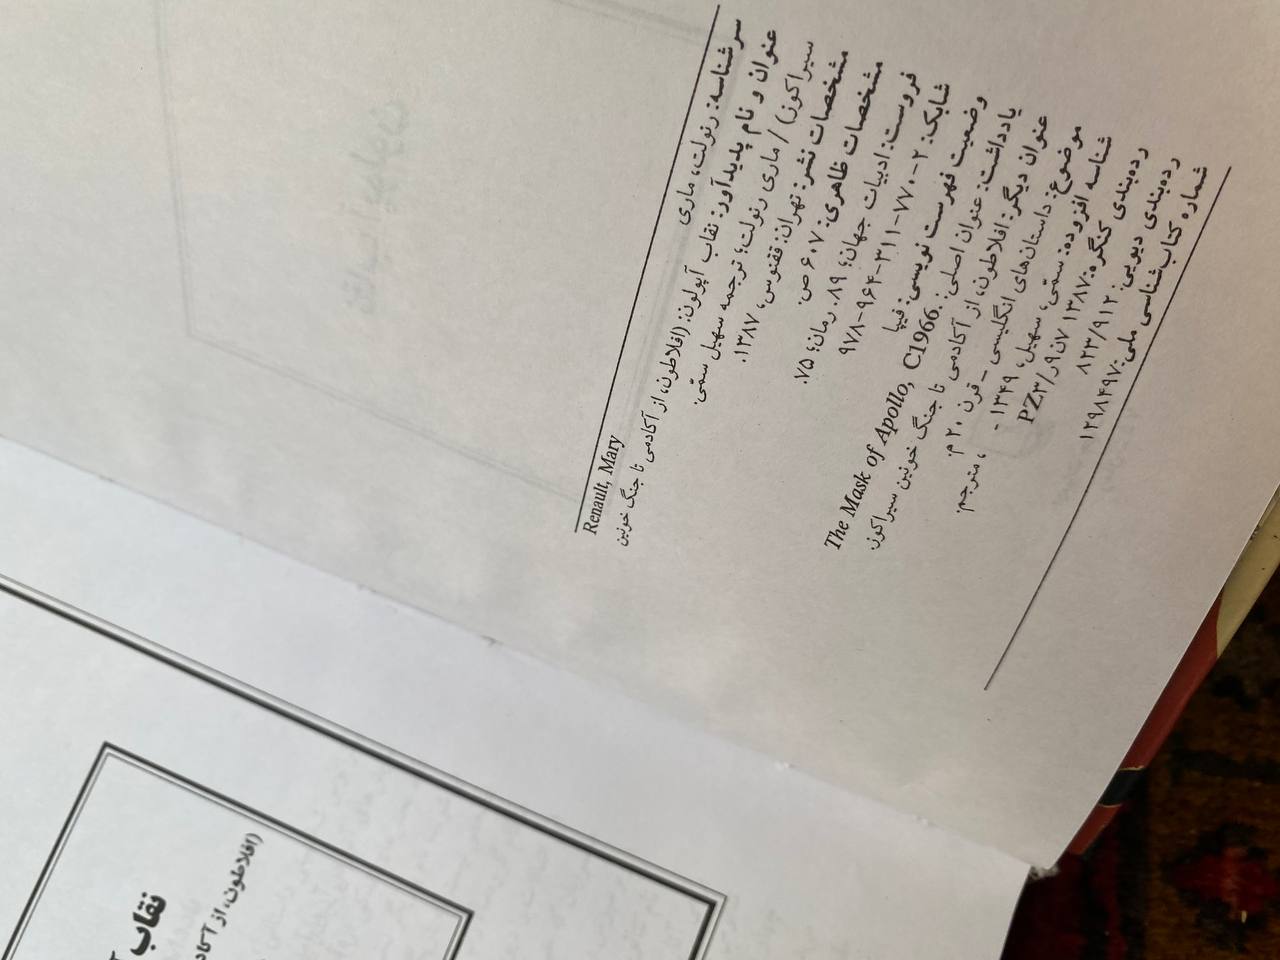 سرشناسه: رنولت، ماری Renault, Mary
عنوان و نام پدیدآور: نقاب آپولون: (افلاطون، از آکادمی تا جنگ خونین
سیراکوز) / ماری رنولت؛ ترجمه سهیل سمّی.
مشخصات نشر: تهران: ققنوس، ۱۳۸۷.
مشخصات ظاهری: ۶۰۷ ص.
فروست: ادبیات جهان؛ ۸۹. رمان؛ ۷۵.
شابک: ۲-۷۷۰-۳۱۱-۹۶۴-۹۷۸
وضعیت فهرست نویسی: فیپا
یادداشت: عنوان اصلی: The Mask of Apollo, C1966.
عنوان دیگر: افلاطون، از آکادمی تا جنگ خونین سیراکوز.
موضوع: داستان‌های انگلیسی - قرن ۲۰ م.
شناسه افزوده: سمّی، سهیل، ۱۳۴۹ - ، مترجم.
رده‌بندی کنگره: ۱۳۸۷ ۷ن۹ر/PZ۳
رده‌بندی دیویی: ۸۲۳/۹۱۲
شماره کتاب‌شناسی ملی: ۱۲۹۸۴۹۷
نقاب
(افلاطون، از